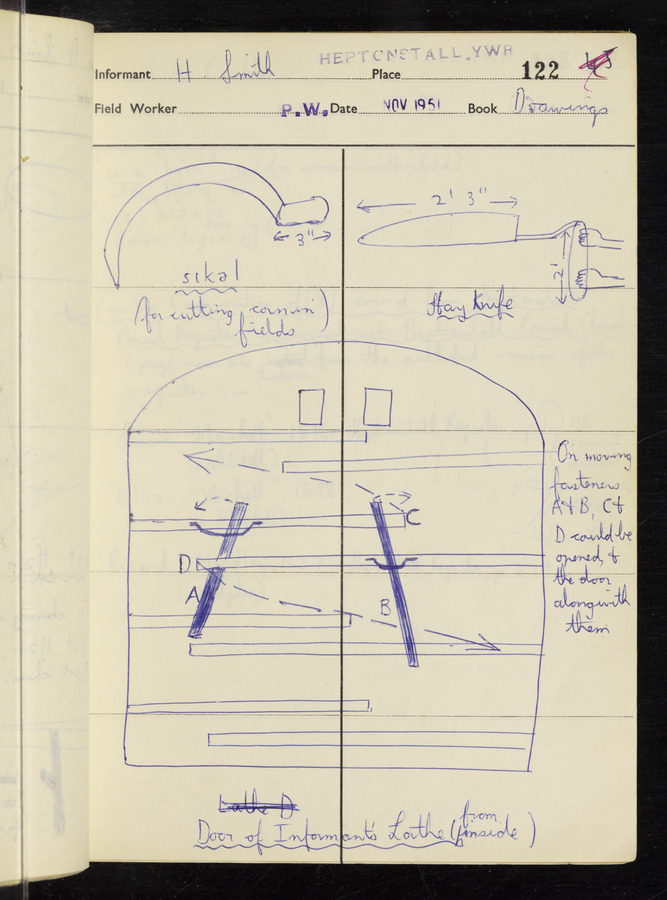 HEPTONSTALL, YWR
Informant H. Smith Place 122
Field Worker P.W. Date NOV 1951 Book Drawings
2' 3"
3"
2'
sikəl
(for cutting corn in)
fields
Hay Knife
On moving
fasteners
A & B, C &
D could be
opened, &
the door
along with
them
C
D
A
B
Lathe D
Door of Informant's Lathe (from inside)